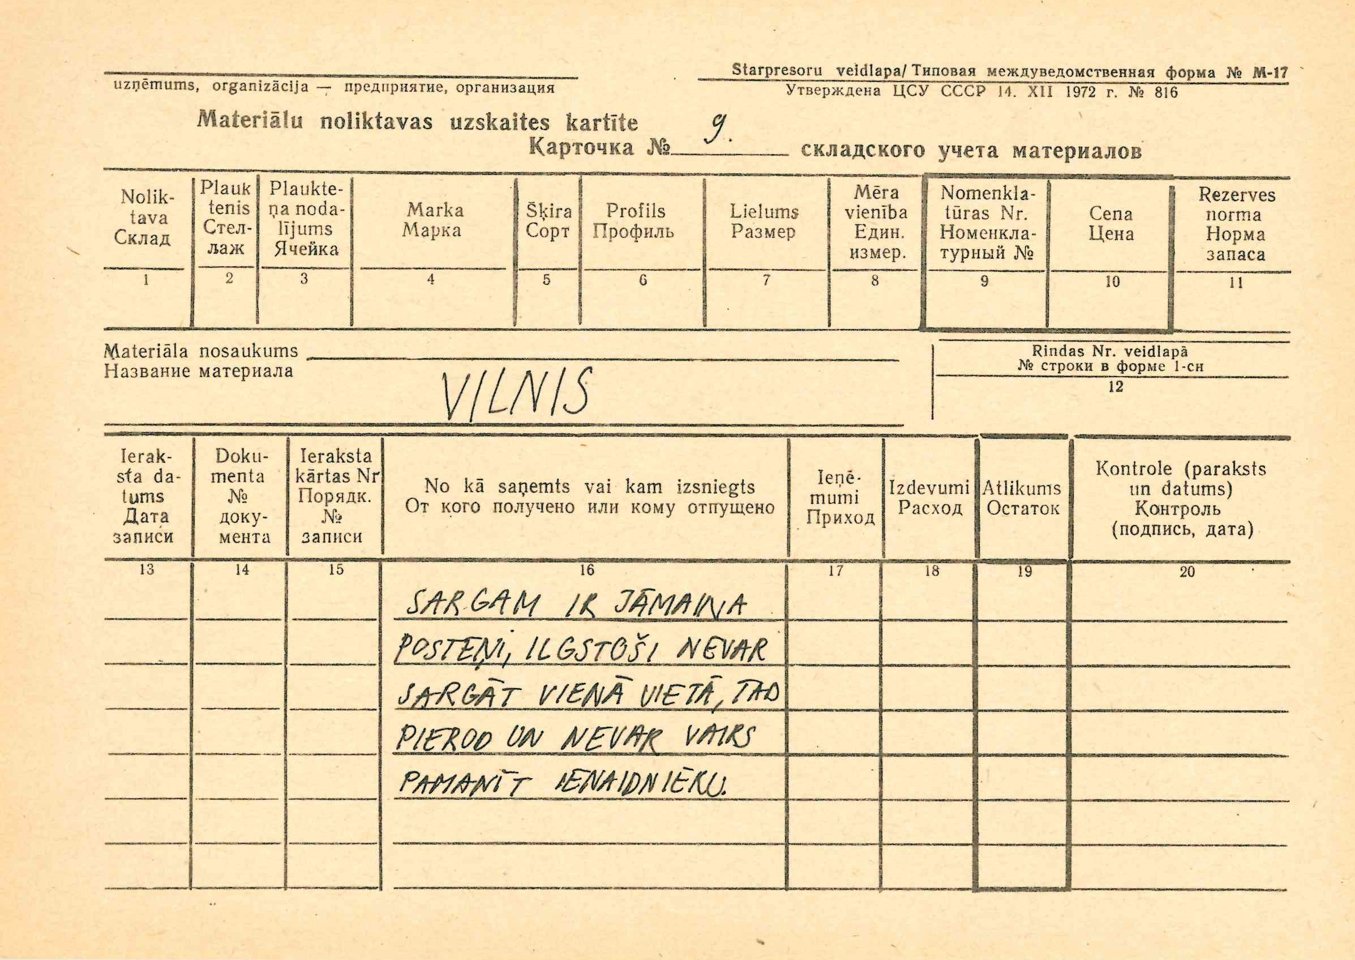 Starpresoru veidlapa/Типовая междуведомственная форма № М-17
uzņēmums, organizācija — предприятие, организация
Утверждена ЦСУ СССР 14. XII 1972 г. № 816
Materiālu noliktavas uzskaites kartīte
Карточка № 9. складского учета материалов
Nolik-
tava
Склад
Plauk
tenis
Стел-
лаж
Plaukte-
ņa noda-
lījums
Ячейка
Marka
Марка
Šķira
Сорт
Profils
Профиль
Lielums
Размер
Mēra
vienība
Един.
измер.
Nomenkla-
tūras Nr.
Номенкла-
турный №
Cena
Цена
Rezerves
norma
Норма
запаса
1 2 3 4 5 6 7 8 9 10 11
Materiāla nosaukums
Название материала
VILNIS
Rindas Nr. veidlapā
№ строки в форме 1-сн
12
Ierak-
sta da-
tums
Дата
записи
Doku-
menta
№
доку-
мента
Ieraksta
kārtas Nr
Порядк.
№
записи
No kā saņemts vai kam izsniegts
От кого получено или кому отпущено
Ieņē-
mumi
Приход
Izdevumi
Расход
Atlikums
Остаток
Kontrole (paraksts
un datums)
Контроль
(подпись, дата)
13 14 15 16 17 18 19 20
SARGAM IR JĀMAIŅA
POSTEŅI, ILGSTOŠI NEVAR
SARGĀT VIENĀ VIETĀ, TAD
PIEROD UN NEVAR VAIRS
PAMANĪT IENAIDNIEKU.